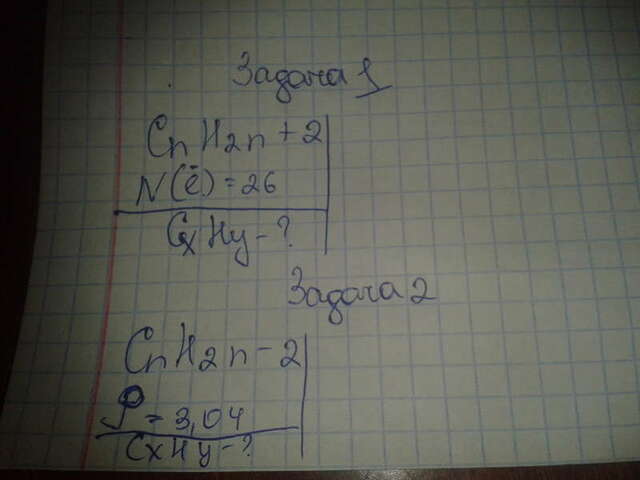 Задача 1
CnH2n+2
N(ē)=26
CxHy-?
Задача 2
CnH2n-2
ρ=3,04
CxHy-?